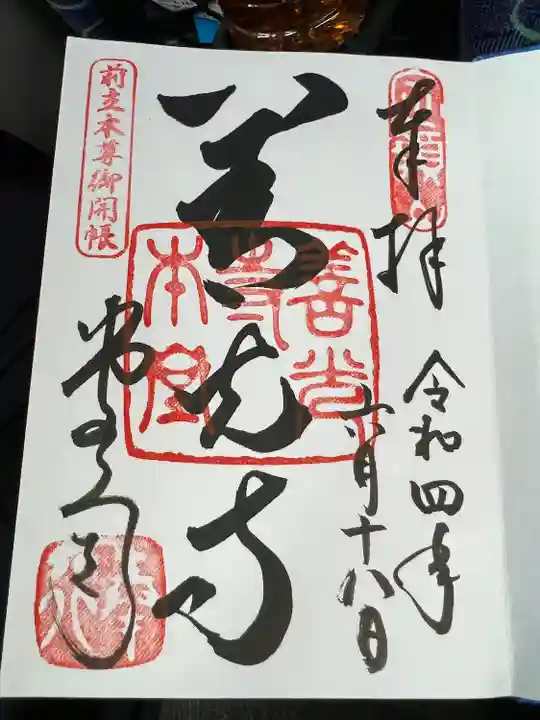 奉拝
令和四年
六月十八日
善光寺
善光
寺
本堂
前立本尊御開帳